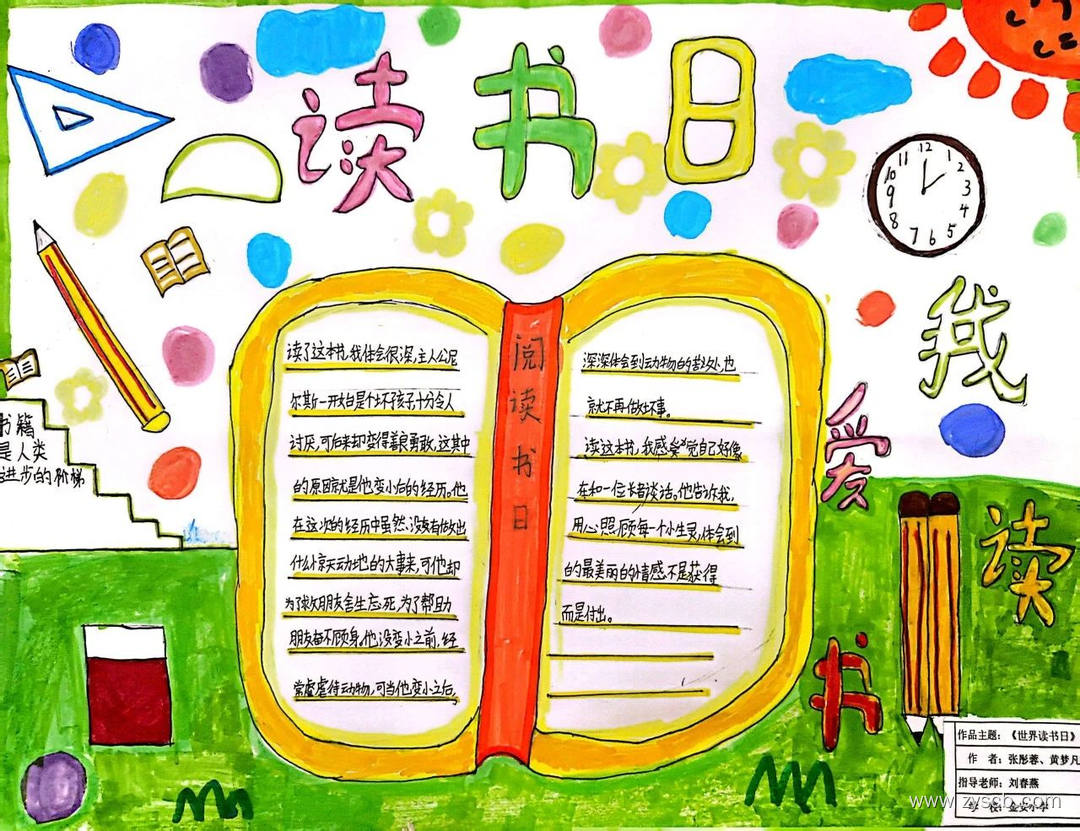 读书日
12
1
2
3
4
5
6
7
8
9
10
11
我
爱
读
书
书籍
是人类
进步的阶梯
阅读书日
读了这本书,我体会很深,主人公尼
尔斯一开始是个坏孩子,十分令人
讨厌,可后来却变得善良勇敢,这其中
的原因就是他变小后的经历。他
在这次的经历中虽然没有做出
什么惊天动地的大事来,可他却
为了救朋友舍生忘死,为了帮助
朋友奋不顾身。他没变小之前,经
常虐待动物,可当他变小之后,
深深体会到动物的苦处,也
就不再做坏事。
读这本书,我感觉自己好像
在和一位长者谈话。他告诉我,
用心照顾每一个小生灵,体会到
的最美丽的情感不是获得
而是付出。
作品主题:《世界读书日》
作 者:张彤蓉、黄梦凡
指导老师:刘春燕
学 校:金安小学
www.zyscb.com